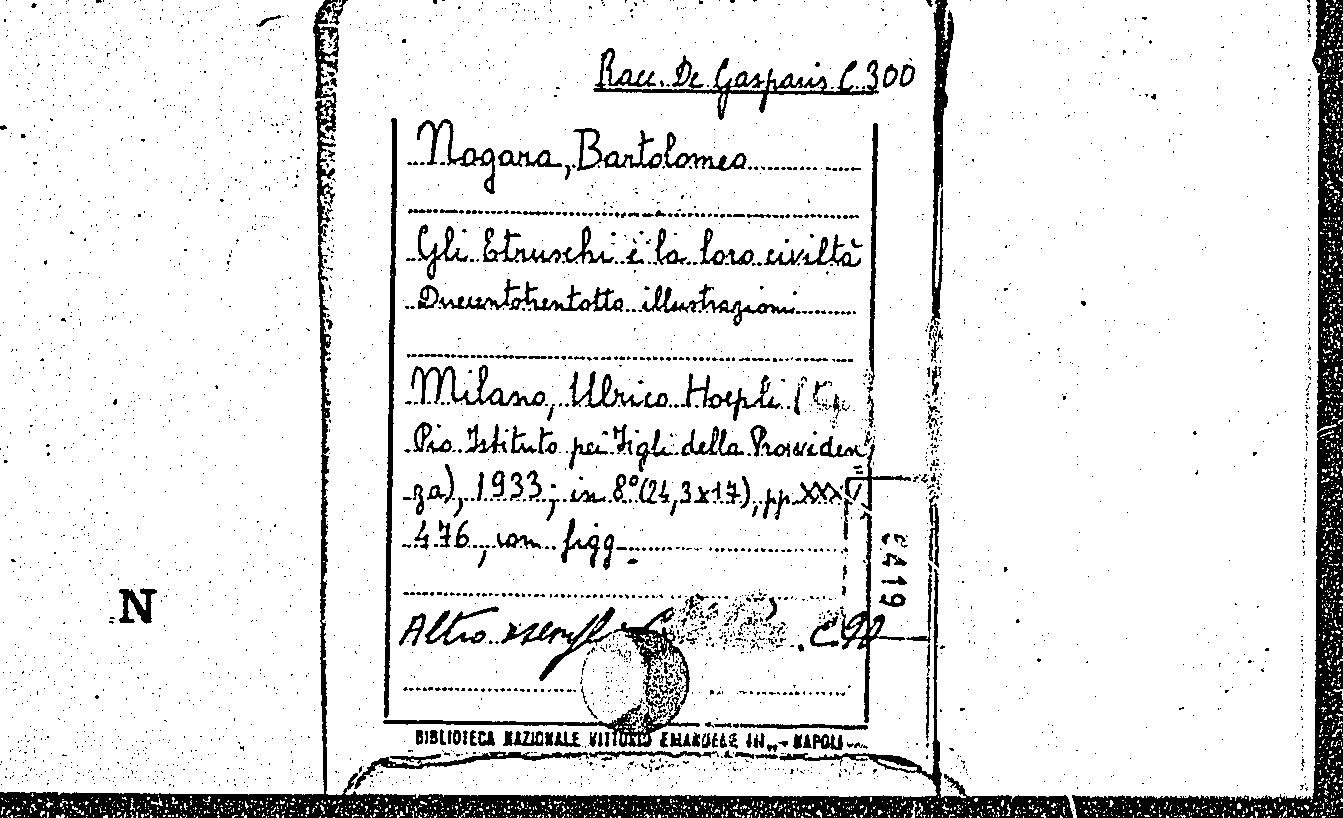 Racc. De Gasparis C 300
Nogara, Bartolomeo
Gli Etruschi e la loro civiltà
Duecentotrentotto illustrazioni
Milano, Ulrico Hoepli (
Pio Istituto pei Figli della Provviden
za), 1933; in 8° (24,3x17), pp. XXXV
476, con figg.
Altro esempl. C 90
6419
N
BIBLIOTECA NAZIONALE VITTORIO EMANUELE III - NAPOLI